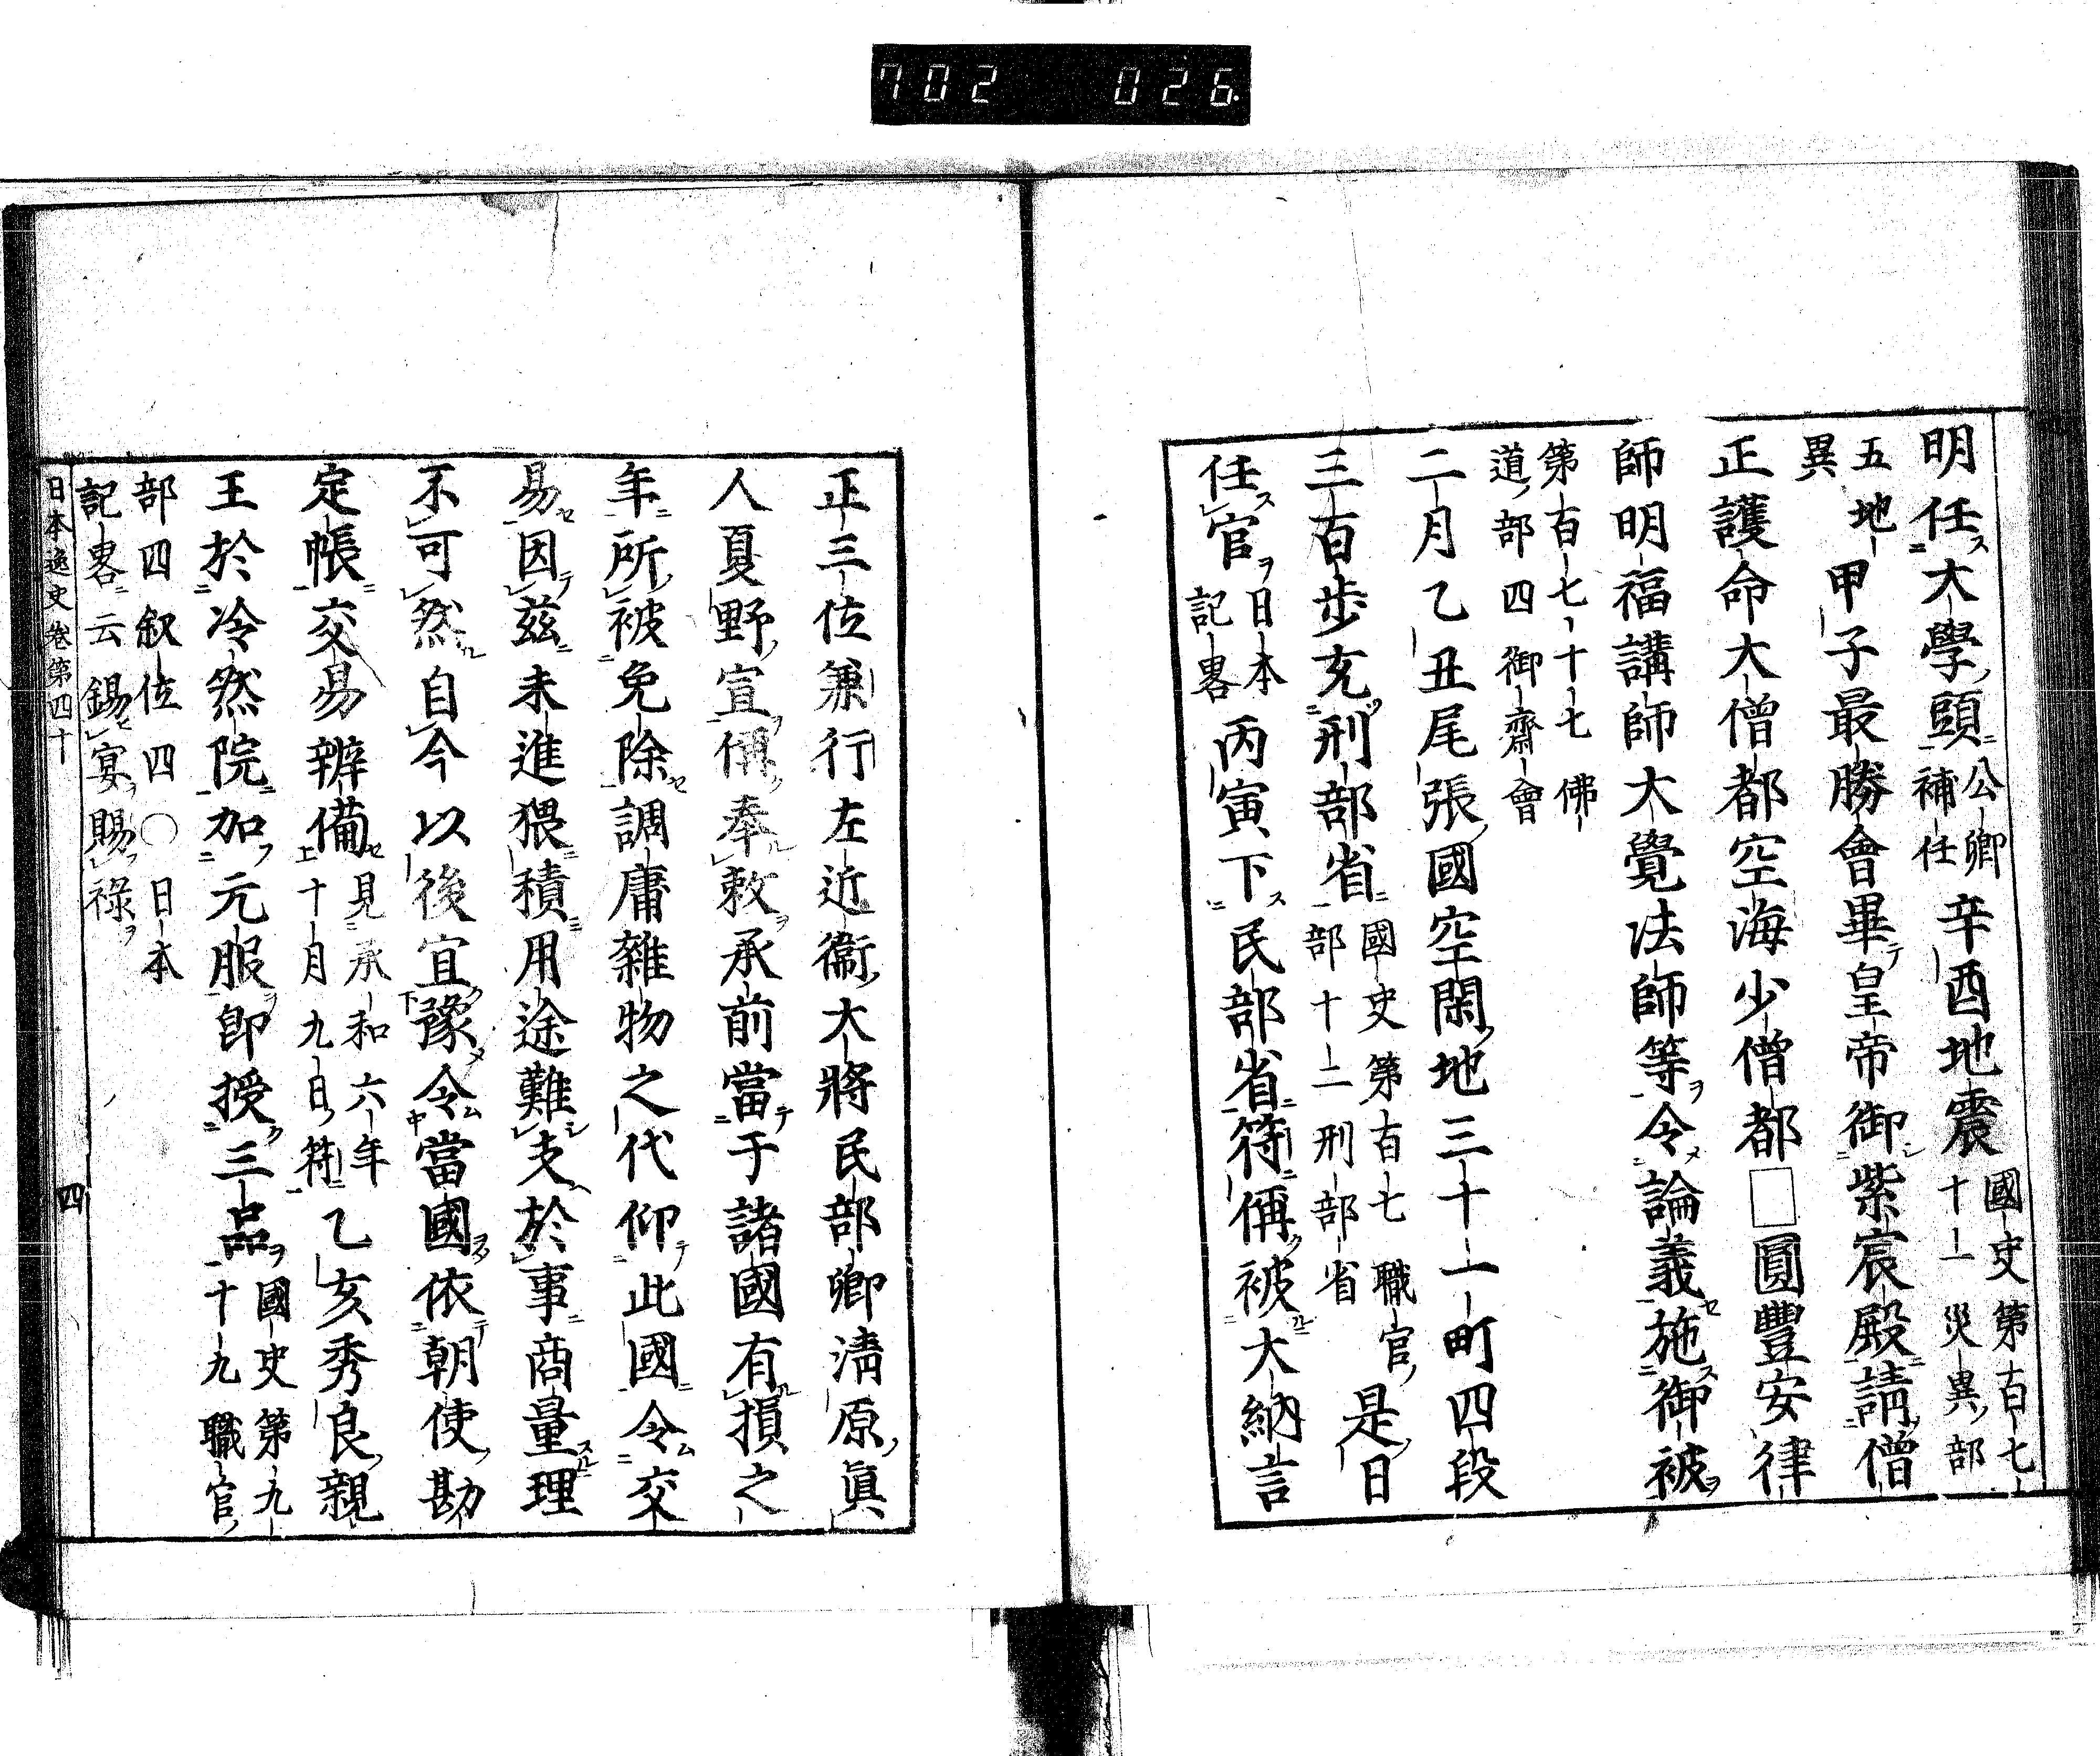 702 026
明任大學頭公卿補任辛酉地震國史第百七十一災異部
五地異甲子最勝會畢皇帝御紫宸殿請僧
正護命大僧都空海少僧都□圓豐安律
師明福講師大覺法師等令論義施御被
第百七十七佛道部四御齋會
二月乙丑尾張國空閑地三十一町四段
三百歩充刑部省國史第百七職官部十二刑部省是日
任官日本記畧丙寅下民部省符偁被大納言
正三位兼行左近衞大將民部卿淸原眞
人夏野宣偁奉敕承前當于諸國有損之
年所被免除調庸雜物之代仰此國令交
易因茲未進猥積用途難支於事商量理
不可然自今以後宜豫令當國依朝使勘
定帳交易辨備見承和六年十月九日符乙亥秀良親
王於冷然院加元服卽授三品國史第九十九職官
部四叙位四○日本記畧云錫宴賜祿
日本逸史卷第四十 四